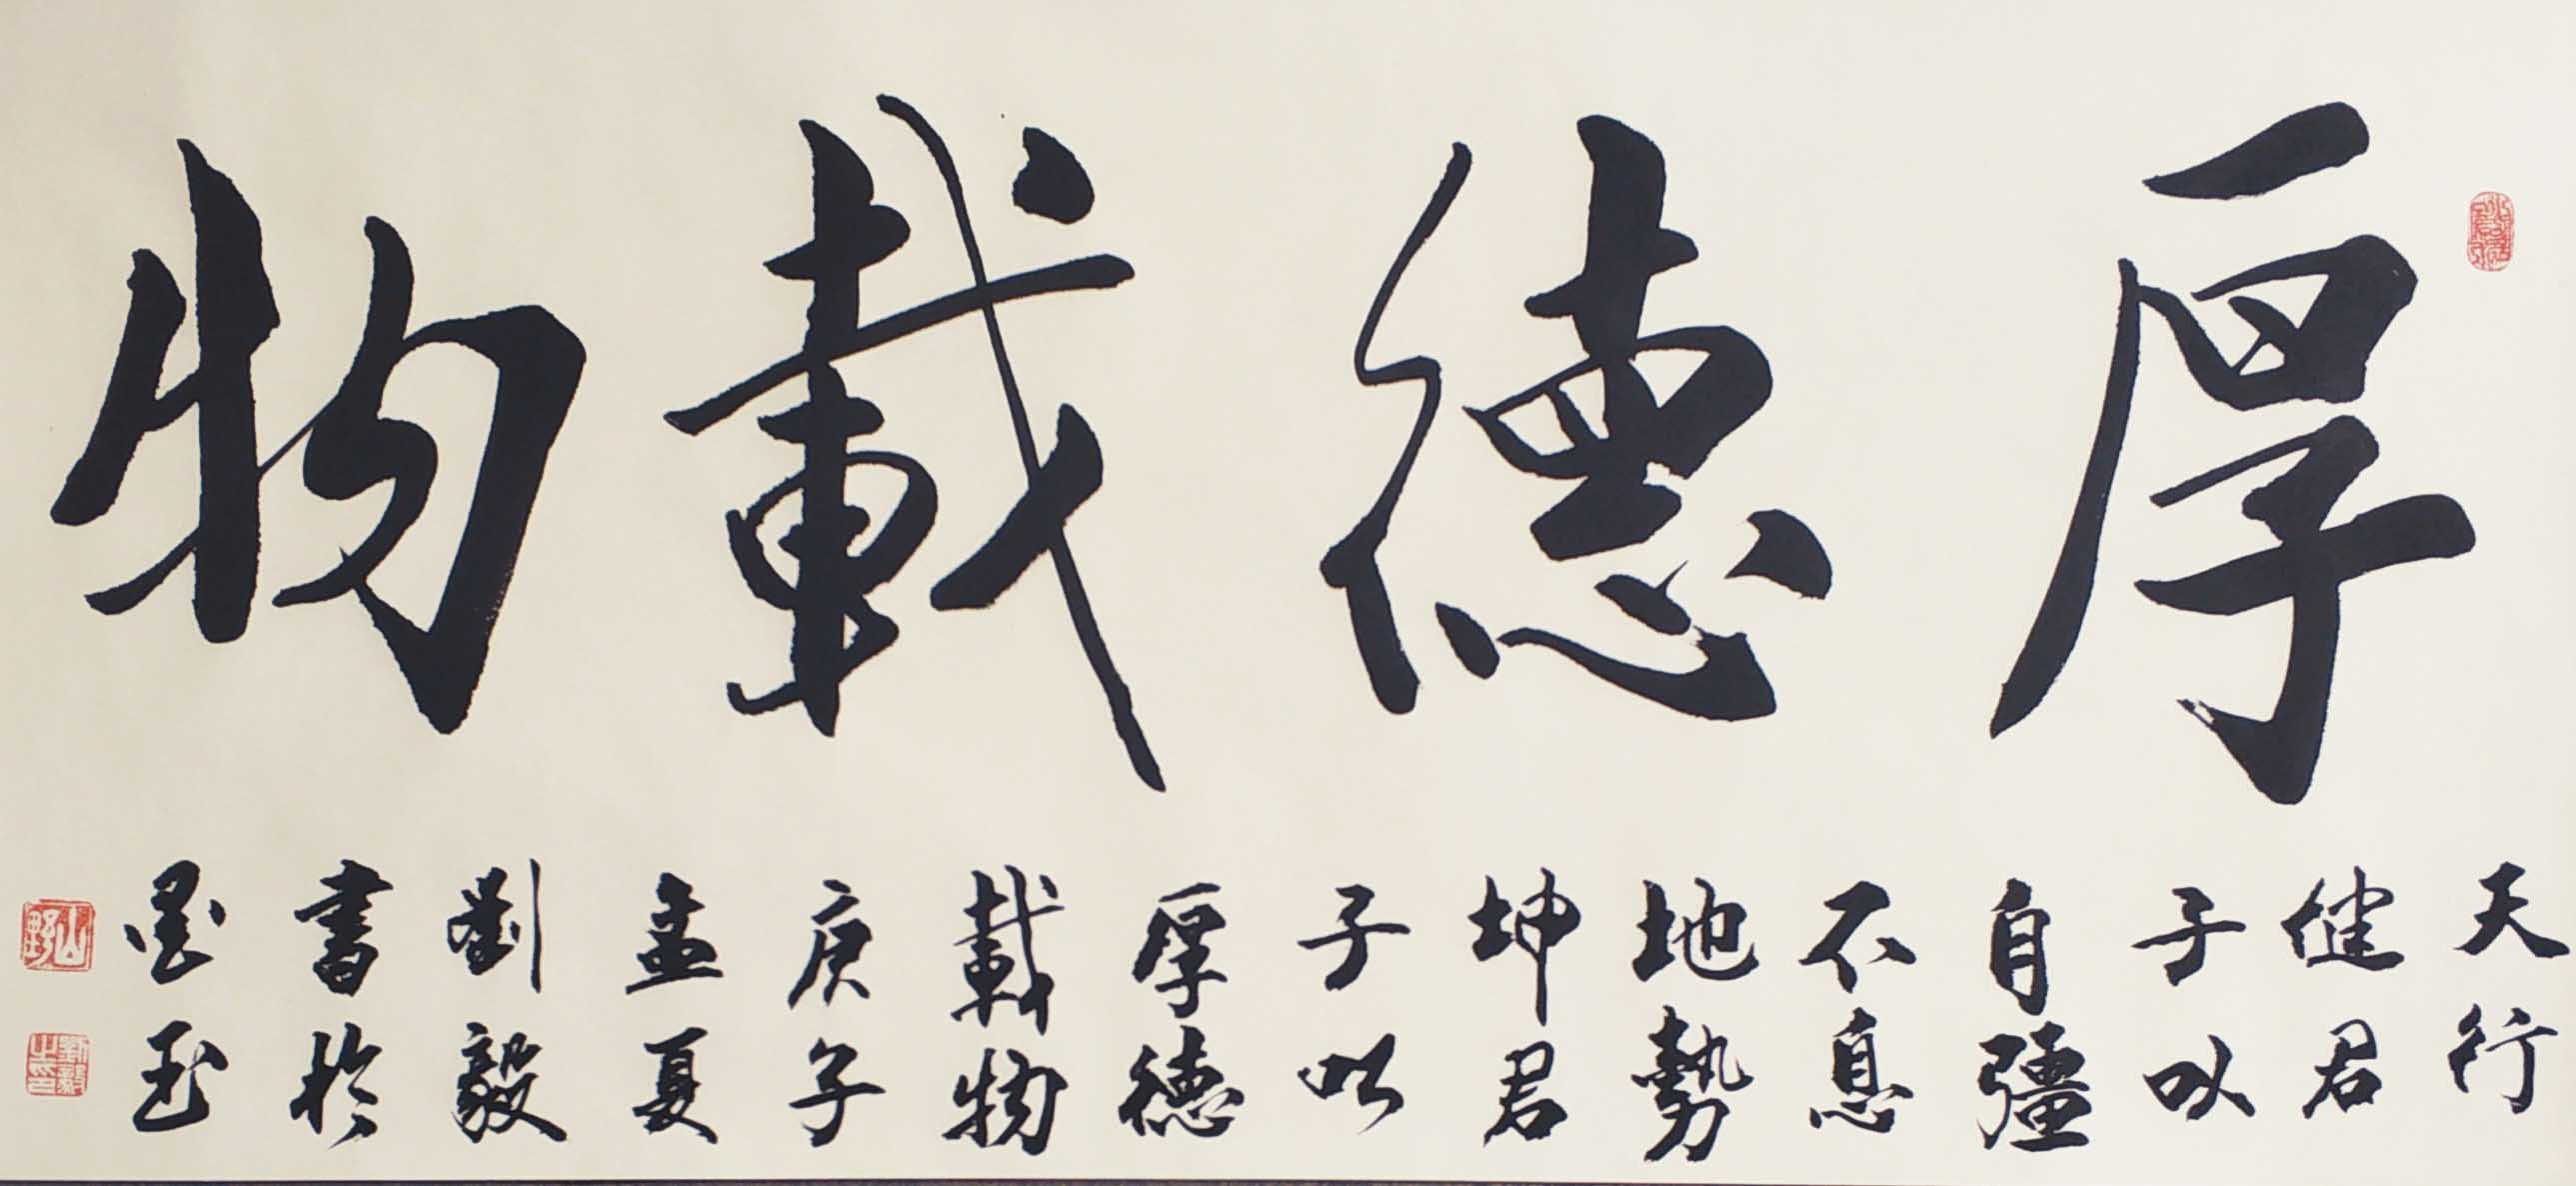 厚德載物
天行
健君
子以
自彊
不息
地勢
坤君
子以
厚德
載物
庚子
孟夏
劉毅
書於
墨玉
山野
劉毅之印